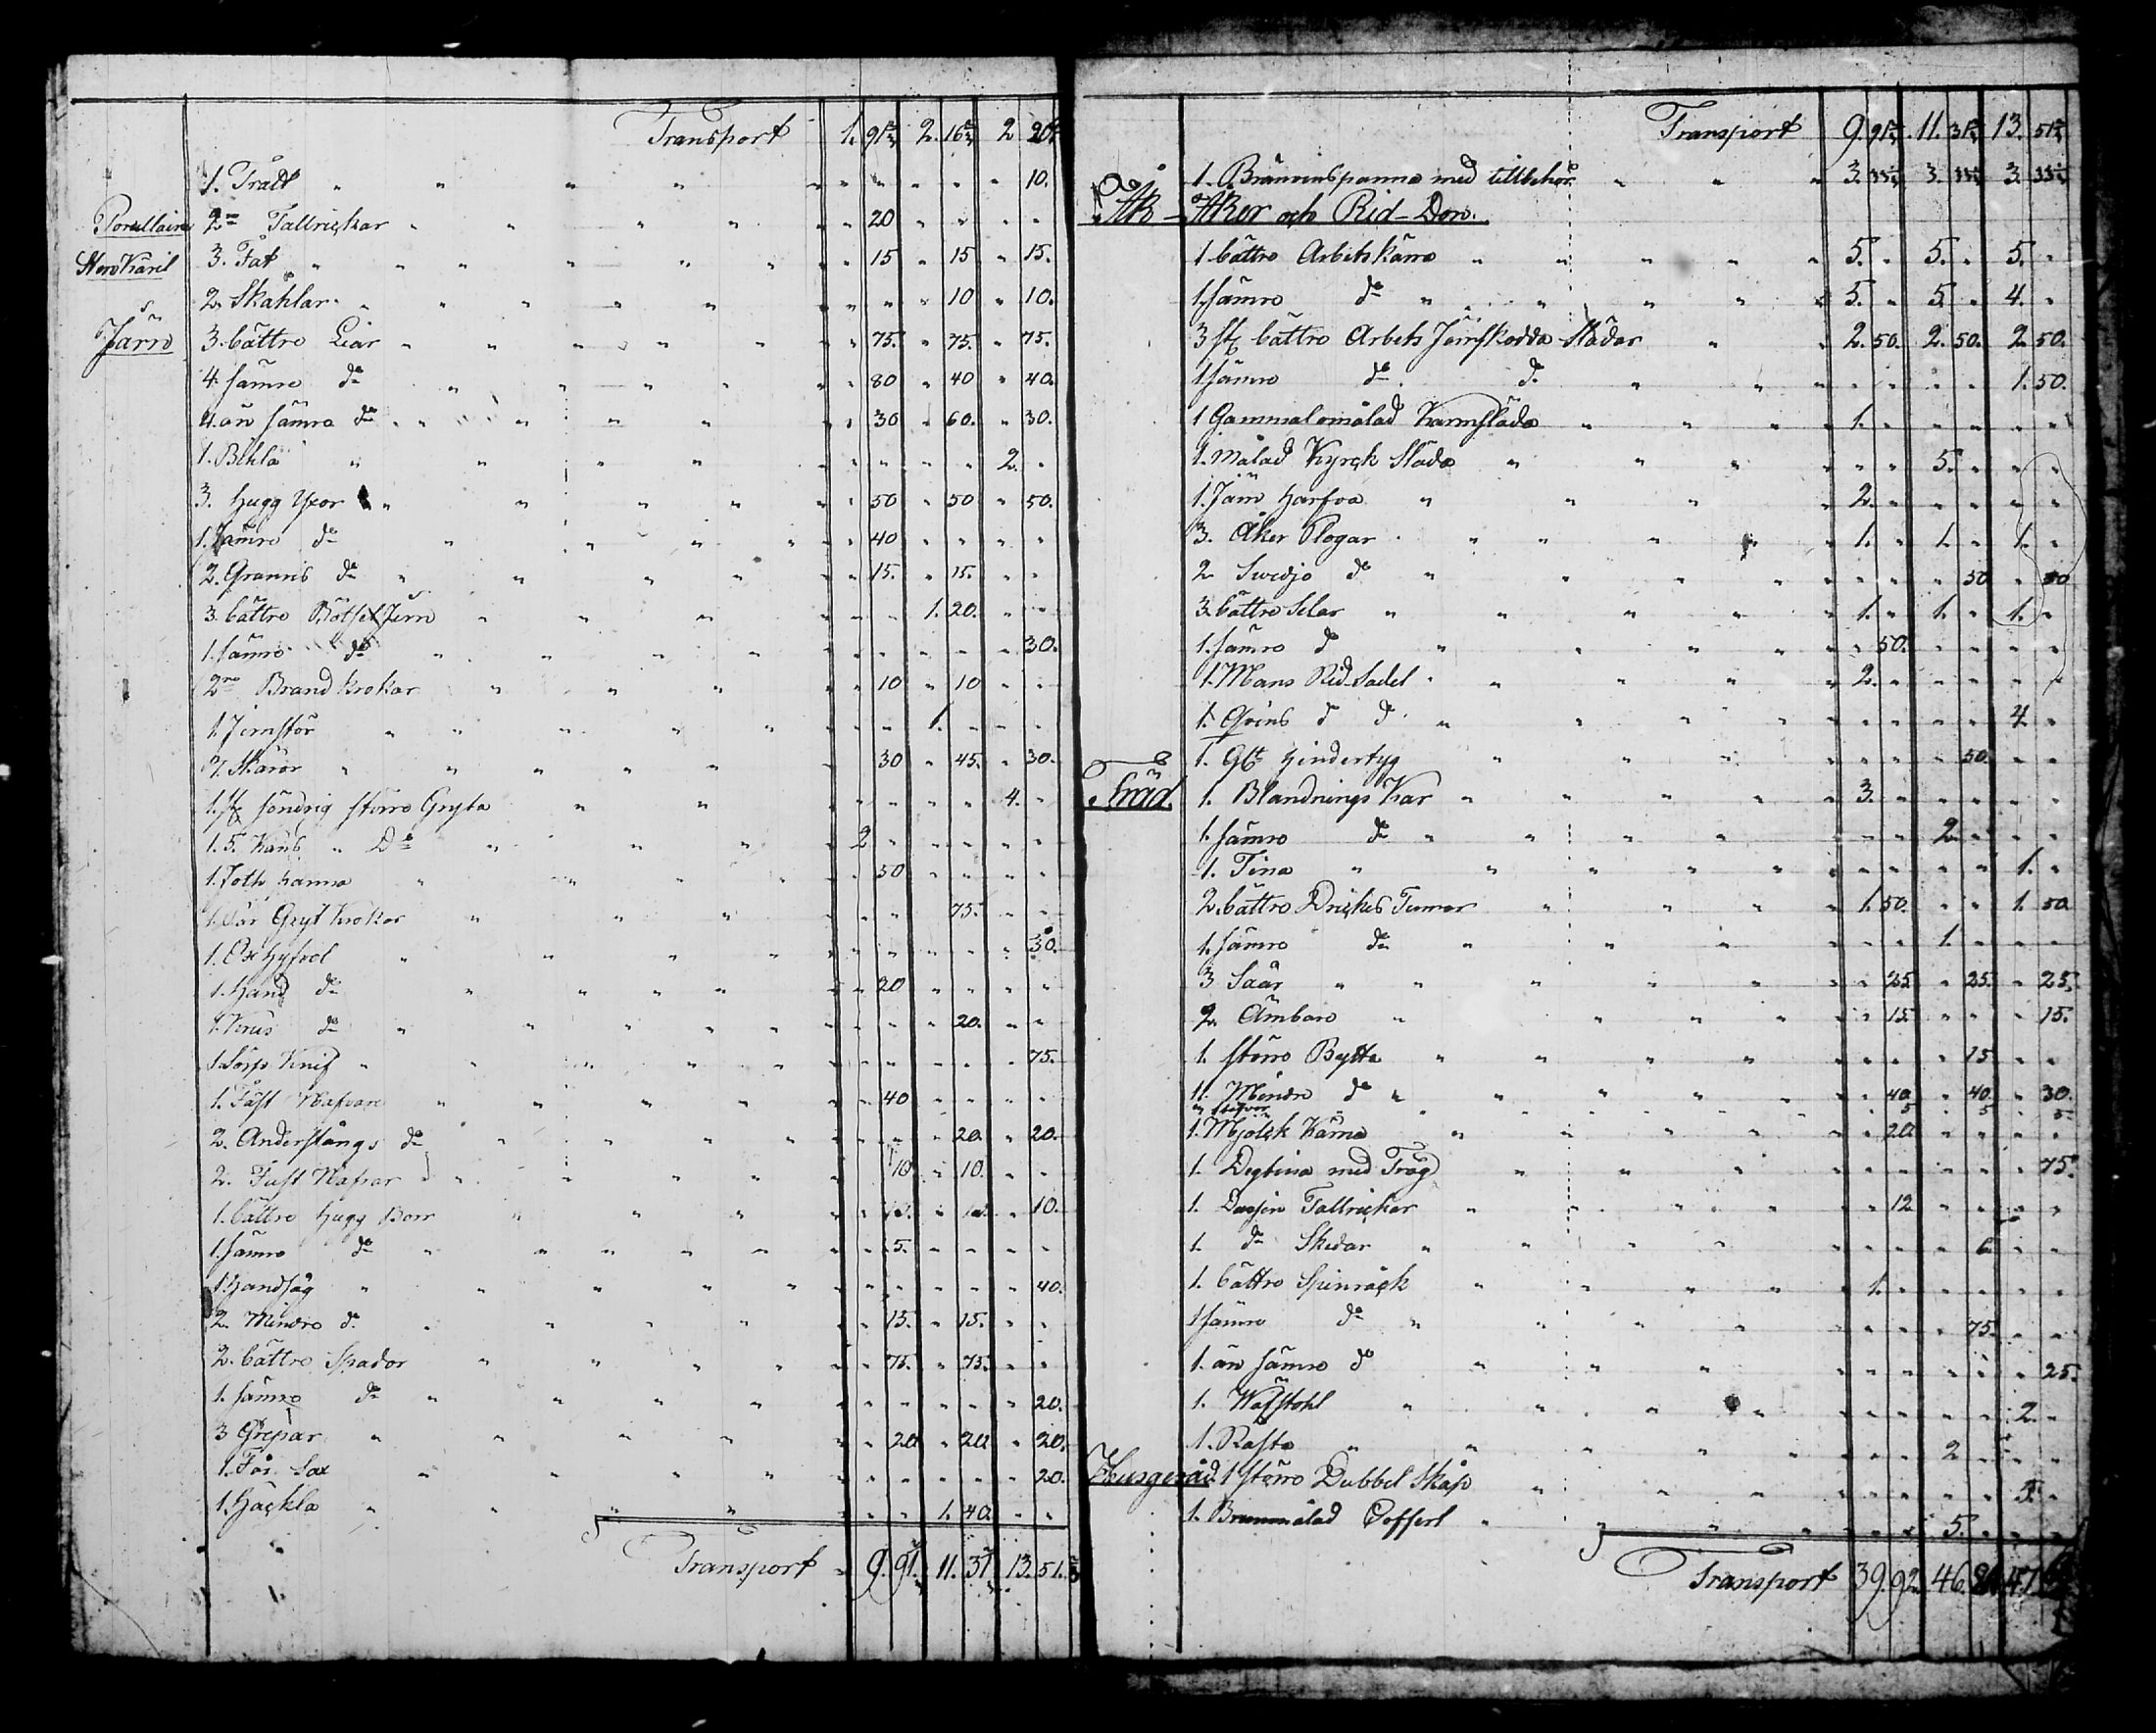 Transport 1. 91 2. 16 2. 20
1. Tratt " " " " " " " " " " 10.
Porcellaine 2ne Tallrickar " " " " 20 " " " "
Stenkäril 3. Fat " " " " " 15 " 15 " 15.
2. Skåhlar " " " " " " " 10 " 10.
Järn 3. bättre Liar " " " " " 75. " 75. " 75.
4. sämre do " " " " 80 " 40 " 40.
4. än sämre do " " " " 30 " 60. " 30.
1. " " " " " " " " 2. "
3. Hugg Yxor " " " " 50 " 50 " 50.
1. sämre do " " " " 40 " " " "
2. do " " " " 15. " 15. " "
3. bättre " " " " " 1. 20. " "
1. sämre do " " " " " " " " 30.
2ne Brand krokar " " " " 10 " 10 " "
1. Jernstör " " " " " " 1. " " "
Skäror " " " " " 30 " 45. " 30.
1. st söndrig större Gryta " " " " " " 4. "
1. 5. Kans " Do " " " 2 " " " " "
1. kanna " " " " 50 " " " "
1. Par Gryt Krokar " " " " " " 75. " "
1. Ox Hyfvel " " " " " " " " " 30.
1. Hand do " " " " " 20 " " " "
1. Krus do " " " " " " " 20. " "
1. Knif " " " " " " " " " 75.
1. Nafvare " " " " 40 " " " "
2. Anderstångs do " " " " " " " 20. " 20.
2. Nafvar " " " " " 10 " 10. " "
1. bättre Hugg Borr " " " " 10. " 10. " 10.
1. sämre do " " " " " 5. " " " "
1. Handsåg " " " " " " " " " 40.
2. Mindre do " " " " 15. " 15. " "
2. bättre Spador " " " " 75. " 75. " "
1. sämre do " " " " " " " " " 20.
3 Grepar " " " " 20 " 20 " 20.
1. Får Sax " " " " " " " " " 20.
1. Häckla " " " " " " 1. 40. " "
Transport " 9. 91. 11. 31 13. 51.
Transport 9. 91 11. 31 13. 51
1. Brännvinspanna med tillbehör " " " 3. 33 3. 33 3. 33
Åk- Åker och Rid-Don.
1. bättre Arbets kärra " " " " 5. " 5. " 5. "
1. sämre do " " " " 5. " 5. " 4. "
3 st bättre Arbets Järnskodda Slädar " " 2. 50. 2. 50. 2. 50.
1 sämre do do " " " " " " " 1. 50.
1 Gammal omålad Karmsläda " " " 1. " " " " "
1. målad Kyrck Släda " " " " " 5. " " "
1. Järn Harfva " " " " 2. " " " " "
3. Åker Plogar " " " " 1. " 1. " 1. "
2. Svedje do " " " " " " " 50 " 50
3. bättre Selar " " " " 1. " 1. " 1. "
1. sämre do " " " " 50. " " " "
1. Mans Rid-Sadel " " " " 2. " " " " "
1. Qvins do do " " " " " " " " 4. "
1. Hindertyg " " " " " " 50. " "
Träd. 1. Blandnings Kar " " " " 3. " " " " "
1. sämre do " " " " " " 2. " " "
1. Tina " " " " " " " " " 1. "
2. bättre Drickes Tunnor " " " 1. 50. " " 1. 50
1. sämre do " " " " " 1. " " "
3 Såår " " " " " 25. " 25. " 25.
2. Ämbare " " " " " 15. " " " 15.
1. större Bytta " " " " " " " 15 " "
11. Mindre do " " " " " 40 " 40. " 30.
5 " 5 " 5
1. Mjölck Kärna " " " " 20 " " " "
1. Degtina med Tråg " " " " " " " " 75.
1. Dussin Tallrickar " " " " 12 " " " "
1. do Skedar " " " " " " " 6. " "
1. bättre Spinråck " " " " 1. " " " " "
1 sämre do " " " " " " " 75. " "
1. än sämre do " " " " " " " " 25.
1. Wäfstohl " " " " " " " " 2. "
1. " " " " " " 2 " " "
Husgeråd. 1 större Dubbel Skåp " " " " " " " "
1. Brunmålad Coffert " " " " " 5. " " "
Transport 39. 92. 46.